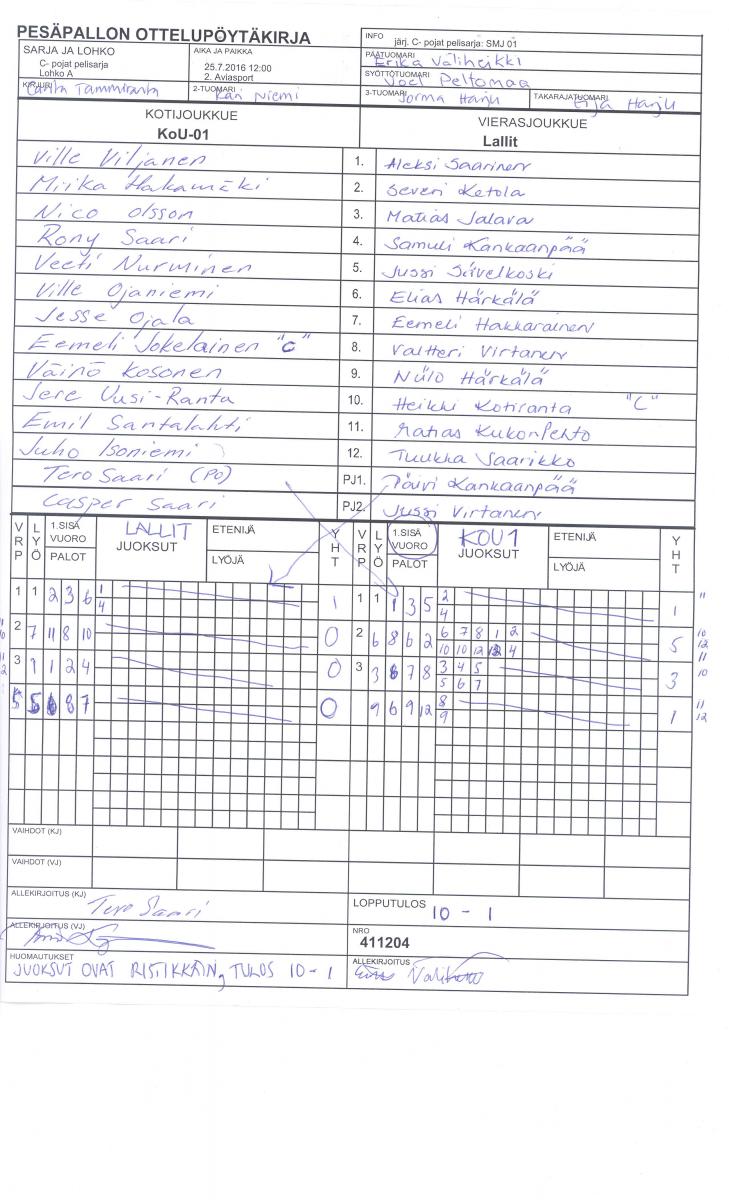 PESÄPALLON OTTELUPÖYTÄKIRJA
INFO järj. C- pojat pelisarja: SMJ 01
SARJA JA LOHKO
C- pojat pelisarja
Lohko A
AIKA JA PAIKKA
25.7.2016 12:00
2. Aviasport
PÄÄTUOMARI Erika Väliheikki
SYÖTTÖTUOMARI Joel Peltomaa
KIRJURI Tammiranta
2-TUOMARI Kari Niemi
3-TUOMARI Jorma Harju
TAKARAJATUOMARI Eija Harju
KOTIJOUKKUE
KoU-01
VIERASJOUKKUE
Lallit
Ville Viljanen 1. Aleksi Saarinen
Miika Hakamäki 2. Severi Ketola
Nico Olsson 3. Matias Jalava
Rony Saari 4. Samuli Kankaanpää
Veeti Nurminen 5. Jussi Sävelkoski
Ville Ojaniemi 6. Elias Härkälä
Jesse Ojala 7. Eemeli Hakkarainen
Eemeli Jokelainen "C" 8. Valtteri Virtanen
Väinö Kosonen 9. Niilo Härkälä
Jere Uusi-Ranta 10. Heikki Kotiranta "C"
Emil Santalahti 11. Matias Kukonlehto
Juho Isoniemi 12. Tuukka Saarikko
Tero Saari (PO) PJ1. Päivi Kankaanpää
Casper Saari PJ2. Jussi Virtanen
VRP LYÖ 1.SISÄ VUORO PALOT LALLIT JUOKSUT ETENIJÄ LYÖJÄ YHT
VRP LYÖ 1.SISÄ VUORO PALOT KOU1 JUOKSUT ETENIJÄ LYÖJÄ YHT
1 1 2 3 6 1 4 1
1 1 1 3 5 2 4 1 11
2 7 11 8 10 0
2 6 8 6 2 6 7 8 1 2 5 10 12
10 10 12 12 4 11
3 1 1 2 4 0
3 3 8 7 8 3 4 5 3 10
5 6 7
5 5 6 8 7 0
9 6 9 12 8 9 1 11 12
VAIHDOT (KJ)
VAIHDOT (VJ)
ALLEKIRJOITUS (KJ) Tero Saari
LOPPUTULOS 10 - 1
ALLEKIRJOITUS (VJ)
NRO
411204
HUOMAUTUKSET
JUOKSUT OVAT RISTIKKÄIN, TULOS 10 - 1
ALLEKIRJOITUS